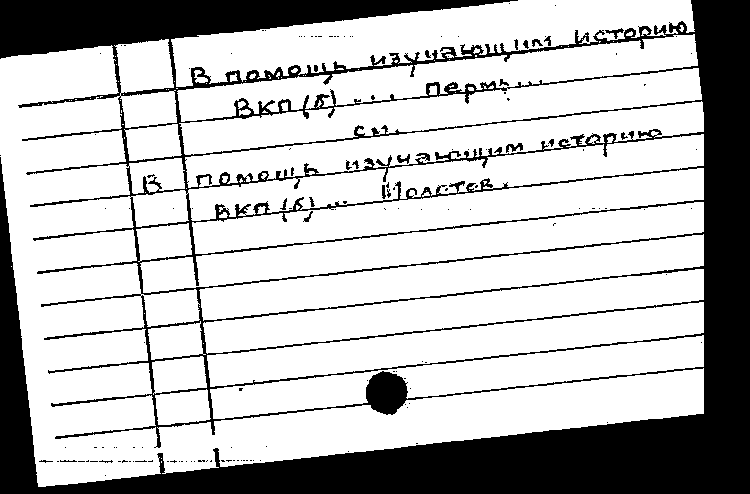 В помощь изучающим историю
ВКП(б) ... Пермь...
см.
В помощь изучающим историю
ВКП(б) ...